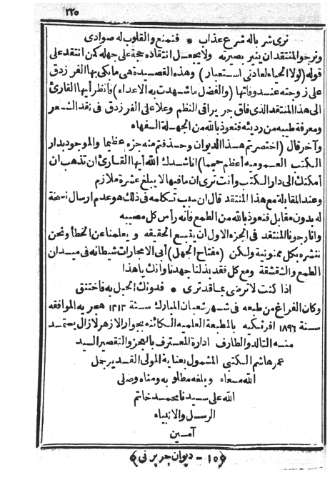 ٢٢٥
نرى شربا له شرع عذاب * فتمنع والقلوب له صوادى
ونرجو المنتقد ان ينير بصيرته ولا يجعل انتقاده حجة على جهله كمن انتقد على
قوله (لولا الحياء لعادنى استعبار) وهذه القصيدة هى ما بكى بها الفرزدق
على زوجته عند وفاتها (والفضل ما شهدت به الاعداء) فانظر أيها القارئ
الى هذا المنتقد الذى فاق جريرا فى النظم وعلا على الفرزدق فى نقد الشعر
ومعرفة طيبه من رديئه فنعوذ بالله من الجهلة السفهاء
وآخر قال (اختصرتم هذا الديوان وحذفتم منه جزء عظيما والموجود بدار
الكتب العموميه أعظم حجما) أناشدك الله أيها القارئ ان تذهب ان
أمكنك الى دار الكتب وأنت ترى ان ما فيها لا يبلغ عشرة ملازم
وعند المقابلة مع هذا المنتقد قال ان سبب تكلمه فى ذلك هو عدم ارسال نسخة
له بدون مقابل فنعوذ بالله من الطمع فانه رأس كل مصيبه
وانا رجونا المنتقد فى الجزء الاول ان يتبع الحقيقه ويعلمنا عن الخطأ ونحن
ننشره بكل ممنونية ولكن (مفتاح الجهل) أبى الا مجاراة شيطانه فى ميدان
الطمع والشقشقة ومع كل فقد بذلنا جهدنا وانك يا هذا
اذا كنت لا ترضى بما قد ترى * فدونك الحبل به فاختنق
وكان الفراغ من طبعه فى شهر شعبان المبارك سنة ١٣١٣ هجريه الموافقه
سنة ١٨٩٦ افرنكيه بالمطبعة العلميه الكائنه بجوار الازهر لازال يستمد
منه التالد والطارف ادارة المعترف بالعجز والتقصير السيد
عمر هاشم الكتبى المشمول بعناية المولى القدير جل
الله مسعاه وبلغه مطلوبه ومناه وصلى
الله على سيدنا محمد خاتم
الرسل والانبياء
آمين
(١٥ - ديوان جرير نى)